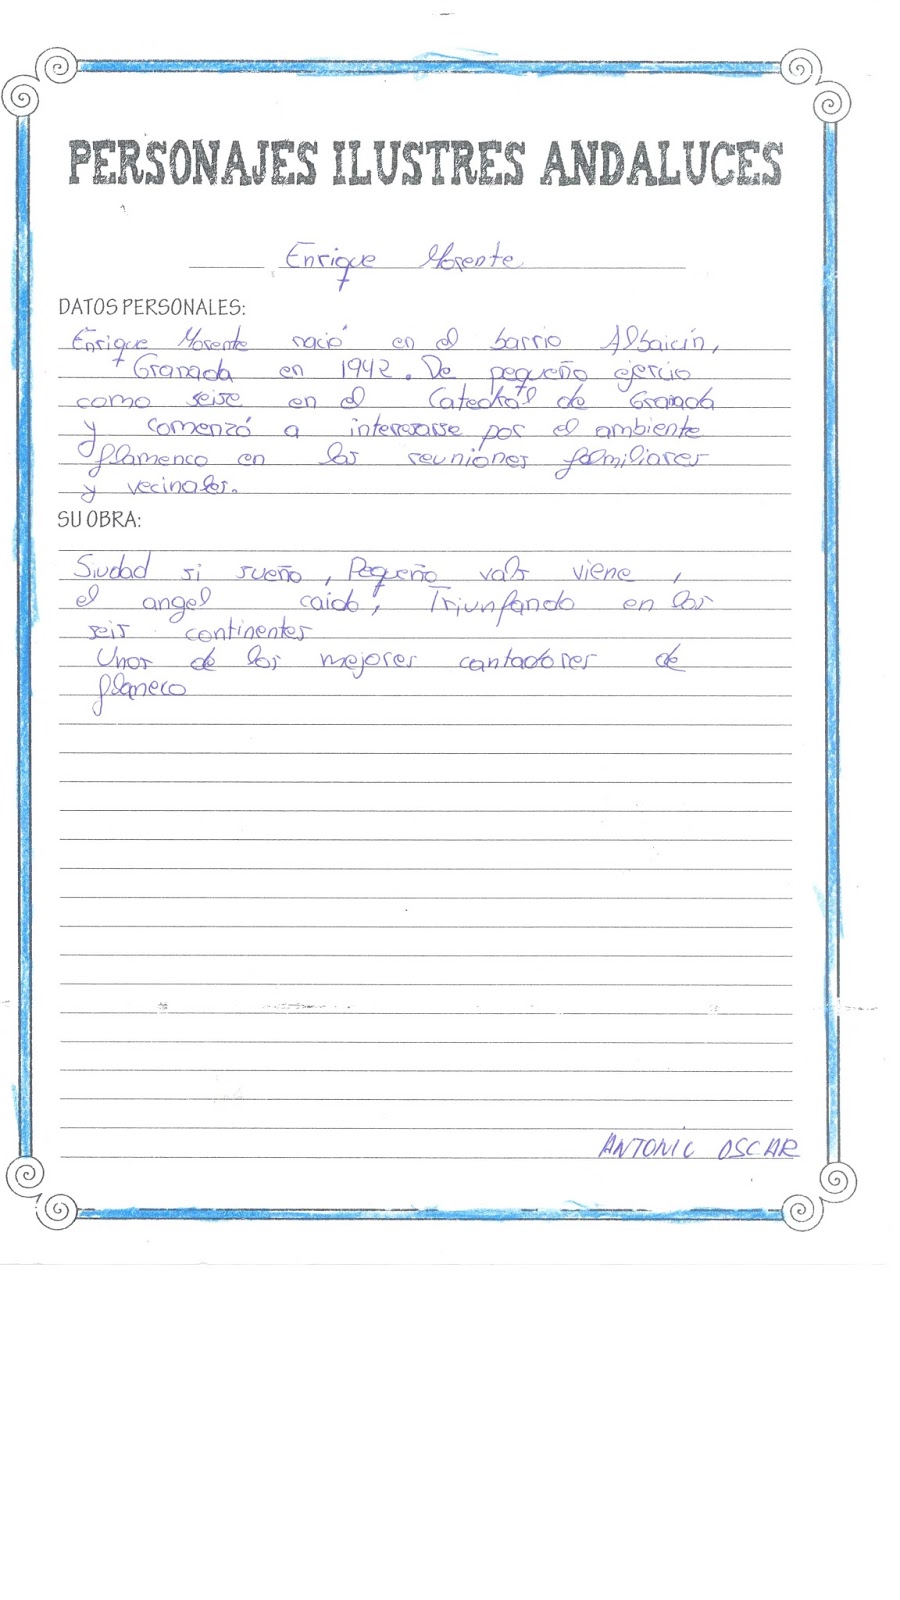 PERSONAJES ILUSTRES ANDALUCES
Enrique Morente
DATOS PERSONALES:
Enrique Morente nació en el barrio Albaicín,
Granada en 1942. De pequeño ejercio
como seise en el Catedral de Granada
y comenzó a interesarse por el ambiente
flamenco en las reuniones familiares
y vecinales.
SU OBRA:
Siudad si sueño, Pequeño vals viene,
el angel caido, Triunfando en los
seis continentes
Unos de los mejores cantadores de
flaneco
ANTONIO OSCAR